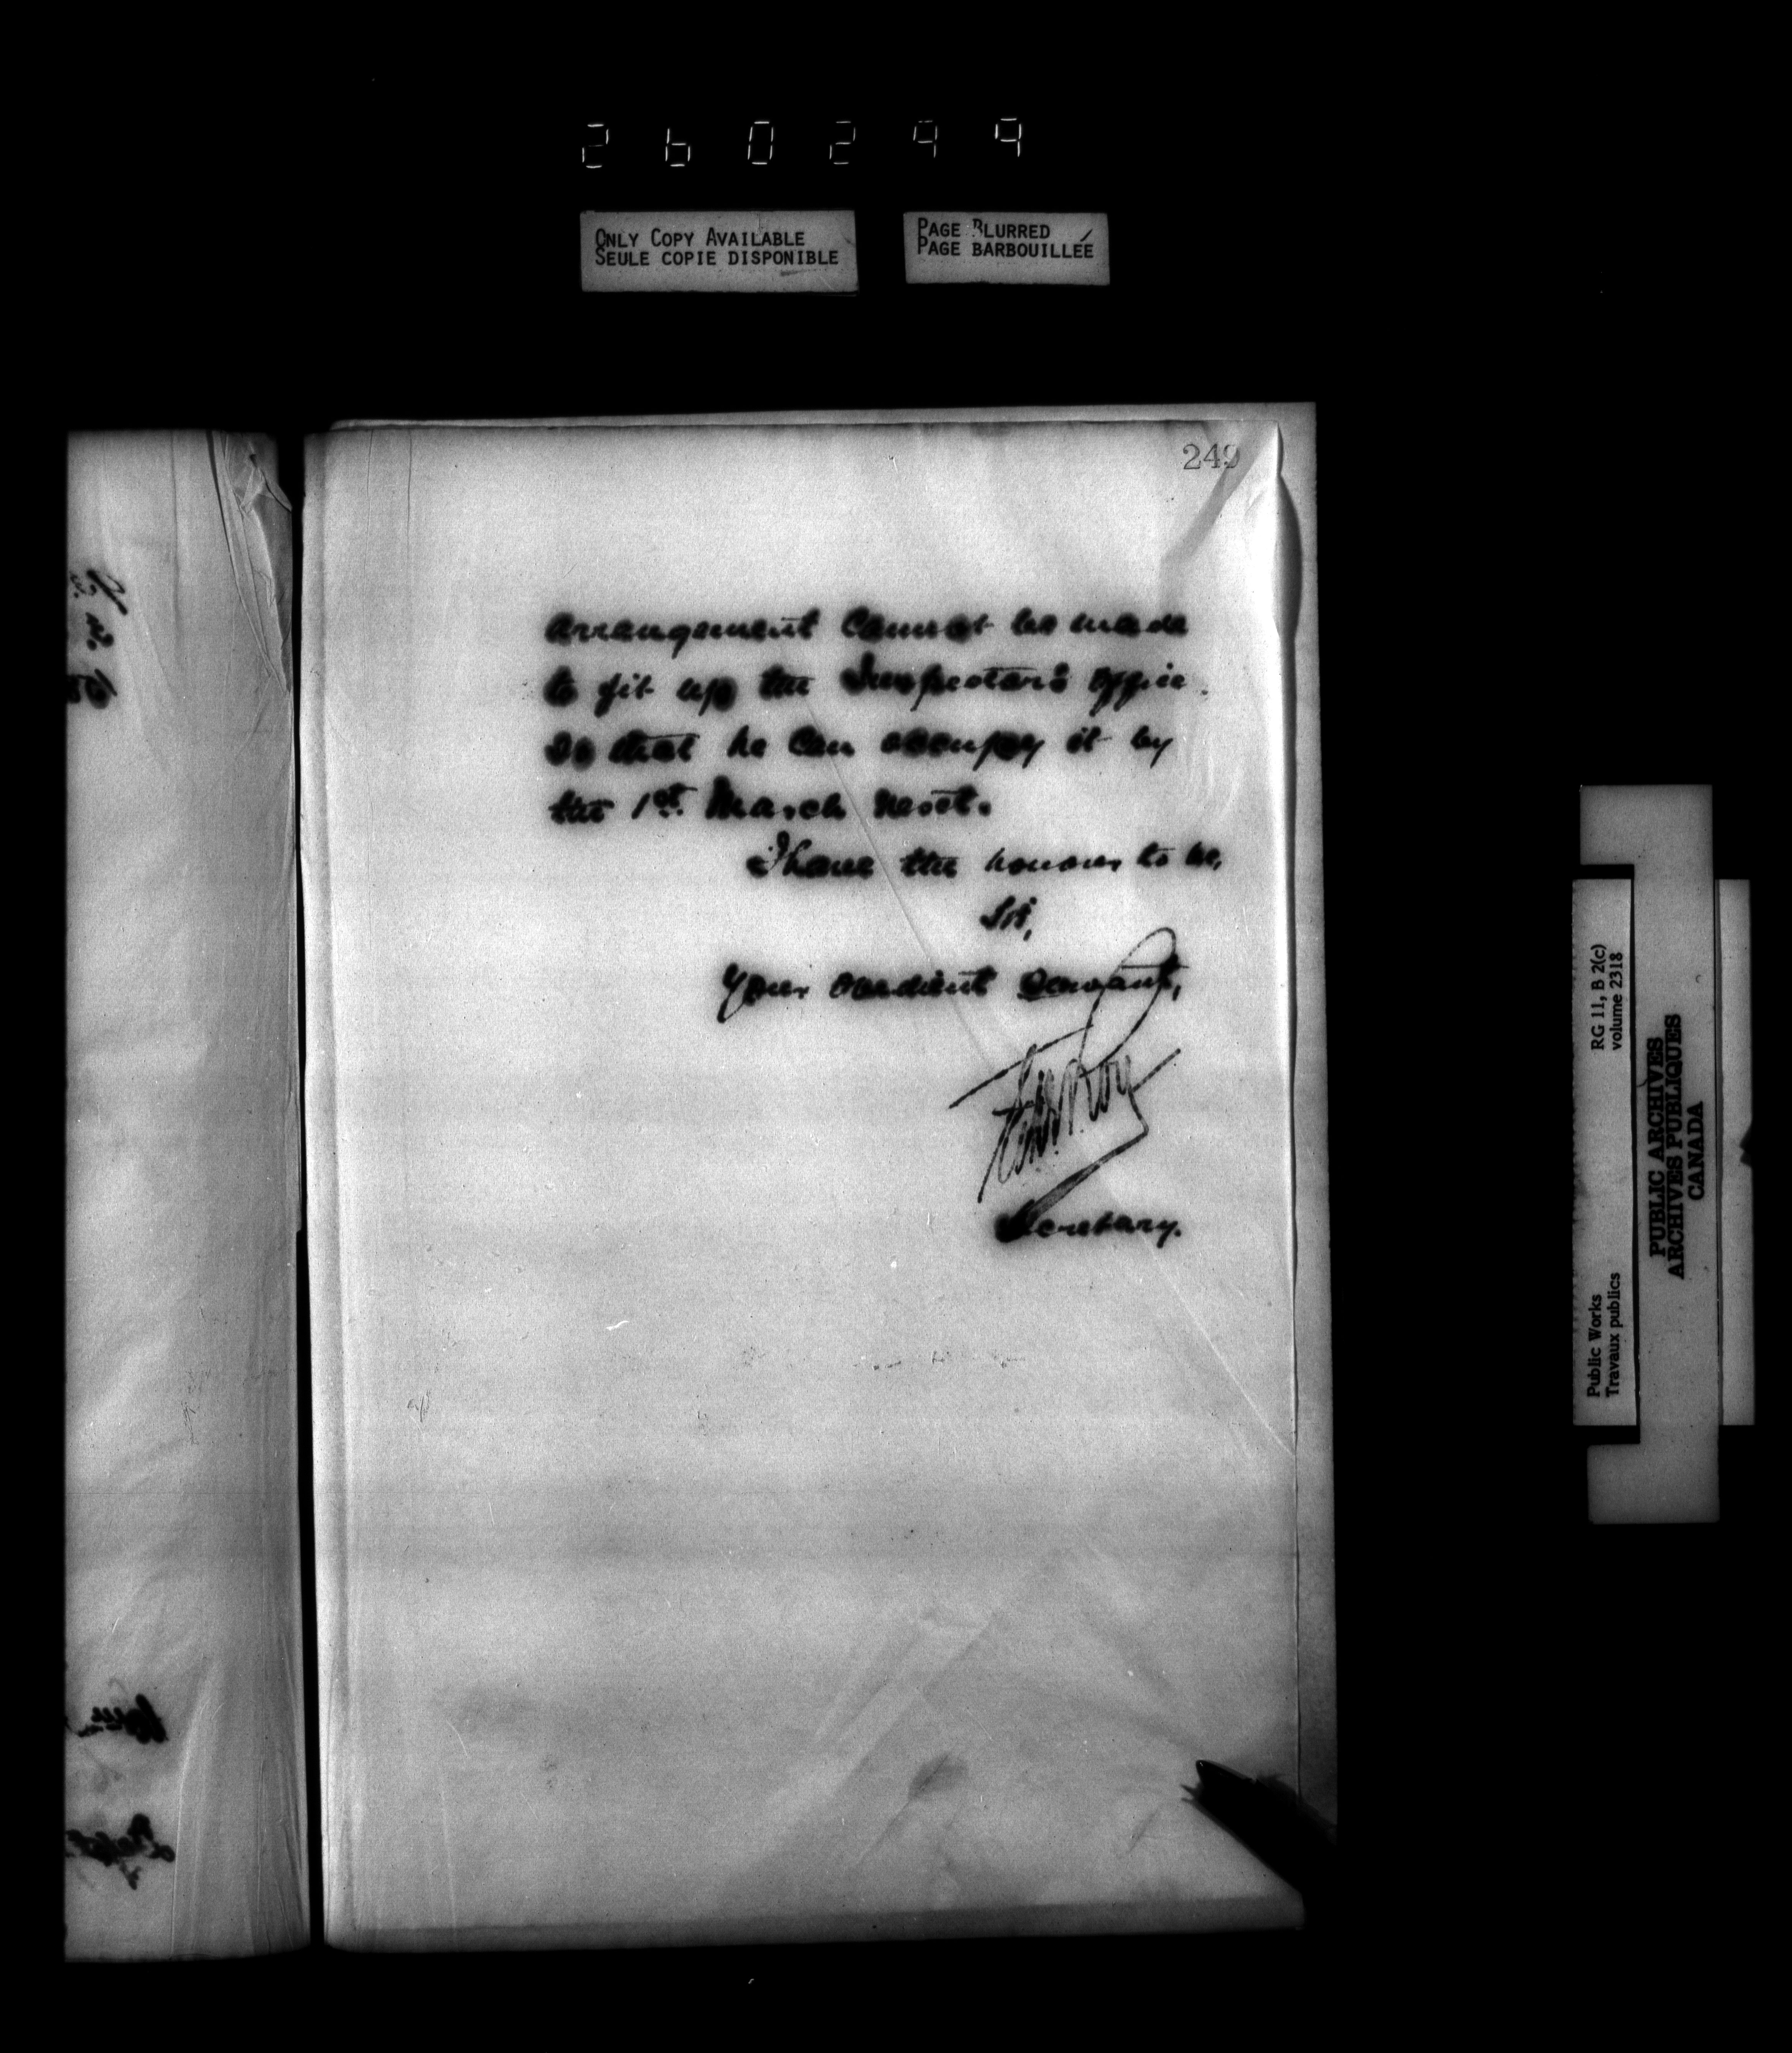 260299
ONLY COPY AVAILABLE
SEULE COPIE DISPONIBLE
PAGE BLURRED
PAGE BARBOUILLÉE
249
arrangement cannot be made
to fit up the Inspector's office
so that he can occupy it by
the 1st. March next.
I have the honour to be,
Sir,
Your obedient servant,
Roy
Secretary.
Public Works
Travaux publics
RG 11, B 2(c)
volume 2318
PUBLIC ARCHIVES
ARCHIVES PUBLIQUES
CANADA